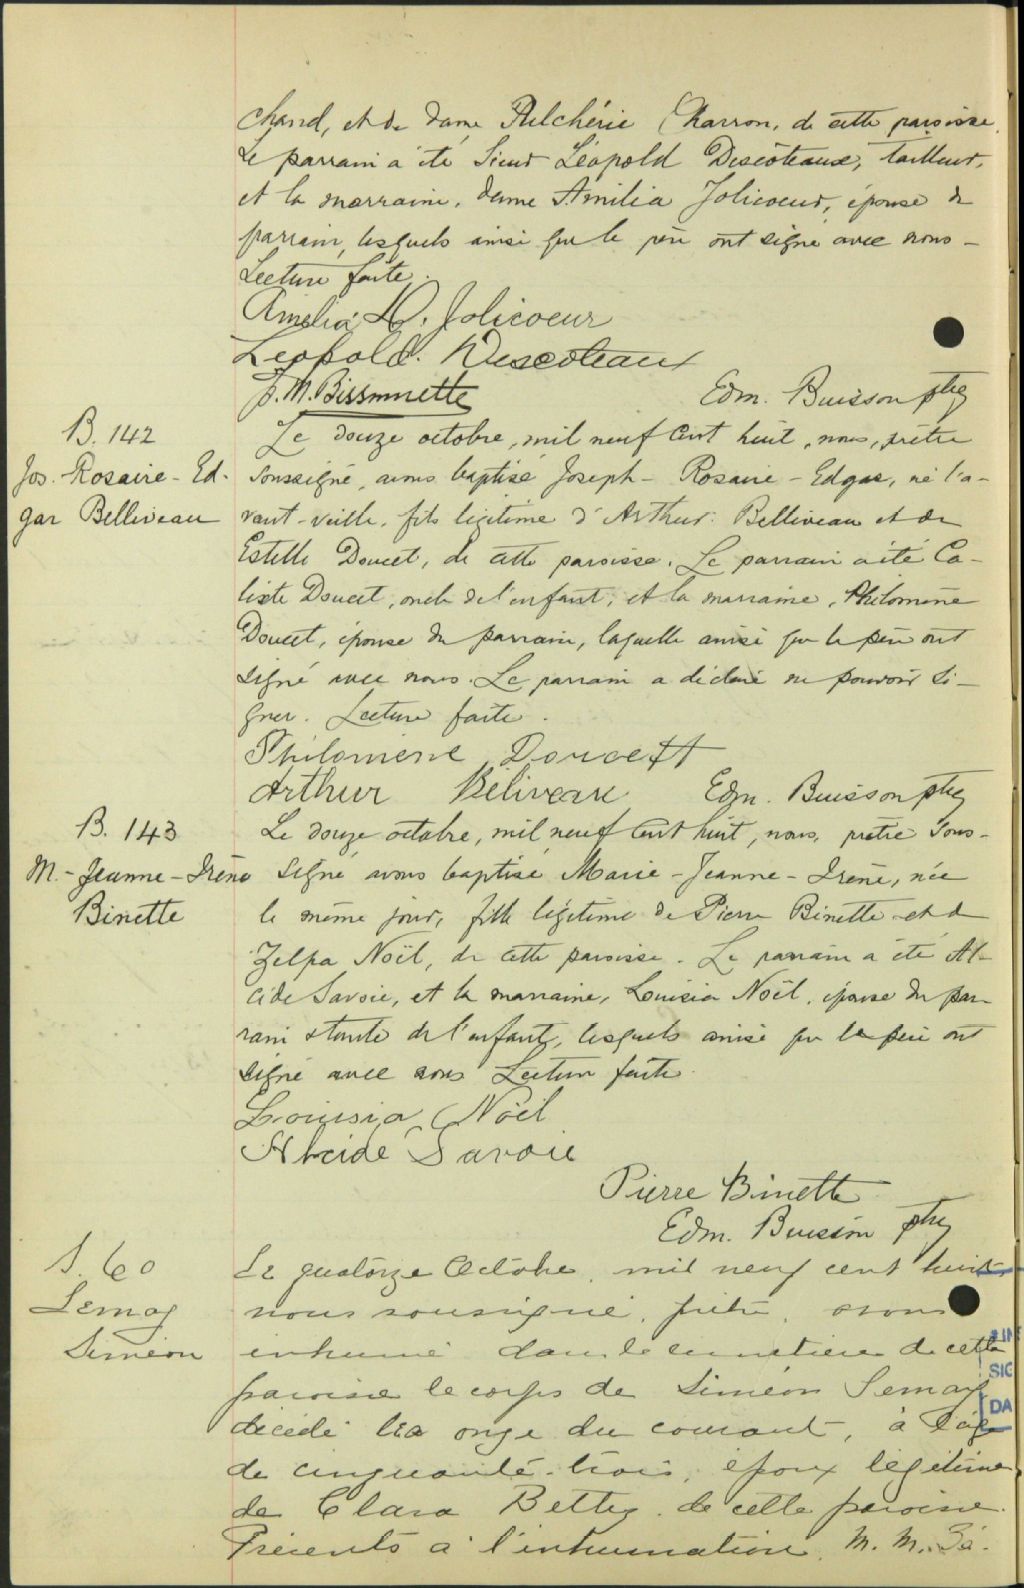 chand, et de dame Pulchérie Charron, de cette paroisse.
Le parrain a été Sieur Léopold Descôteaux, tailleur,
et la marraine, dame Amilia Jolicoeur, épouse du
parrain, lesquels ainsi que le père ont signé avec nous -
Lecture faite.
Amelia D. Jolicoeur
Leopold. Descoteaux
J. M. Bissonnette
Edm. Buisson ptre
B. 142
Jos. Rosaire - Ed-
gar Belliveau
Le douze octobre, mil neuf cent huit, nous, prêtre
soussigné, avons baptisé Joseph - Rosaire - Edgar, né l'a-
vant-veille, fils légitime d'Arthur Belliveau et de
Estelle Doucet, de cette paroisse. Le parrain a été Ca-
lixte Doucet, oncle de l'enfant, et la marraine, Philomène
Doucet, épouse du parrain, laquelle ainsi que le père ont
signé avec nous. Le parrain a déclaré ne pouvoir si-
gner. Lecture faite.
Philomene Doucett
Arthur Béliveau
Edm. Buisson ptre
B. 143
M. - Jeanne - Irène
Binette
Le douze octobre, mil neuf cent huit, nous, prêtre sous-
signé avons baptisé Marie - Jeanne - Irène, née
le même jour, fille légitime de Pierre Binette et de
Zelpa Noël, de cette paroisse. Le parrain a été Al-
cide Savoie, et la marraine, Louisia Noël, épouse du par-
rain & tante de l'enfant, lesquels ainsi que le père ont
signé avec nous Lecture faite.
Louisia Noël
Alcide Savoie
Pierre Binette
Edm. Buisson ptre
S. 60
Lemay
Siméon
Le quatorze Octobre, mil neuf cent huit
nous soussigné, prêtre, avons
inhumé dans le cimetière de cette
paroisse le corps de Siméon Lemay
décédé le onze du courant, à l'âge
de cinquante-trois, époux légitime
de Clara Bettez de cette paroisse.
Présents à l'inhumation, M. M. Za-
SIG
DA